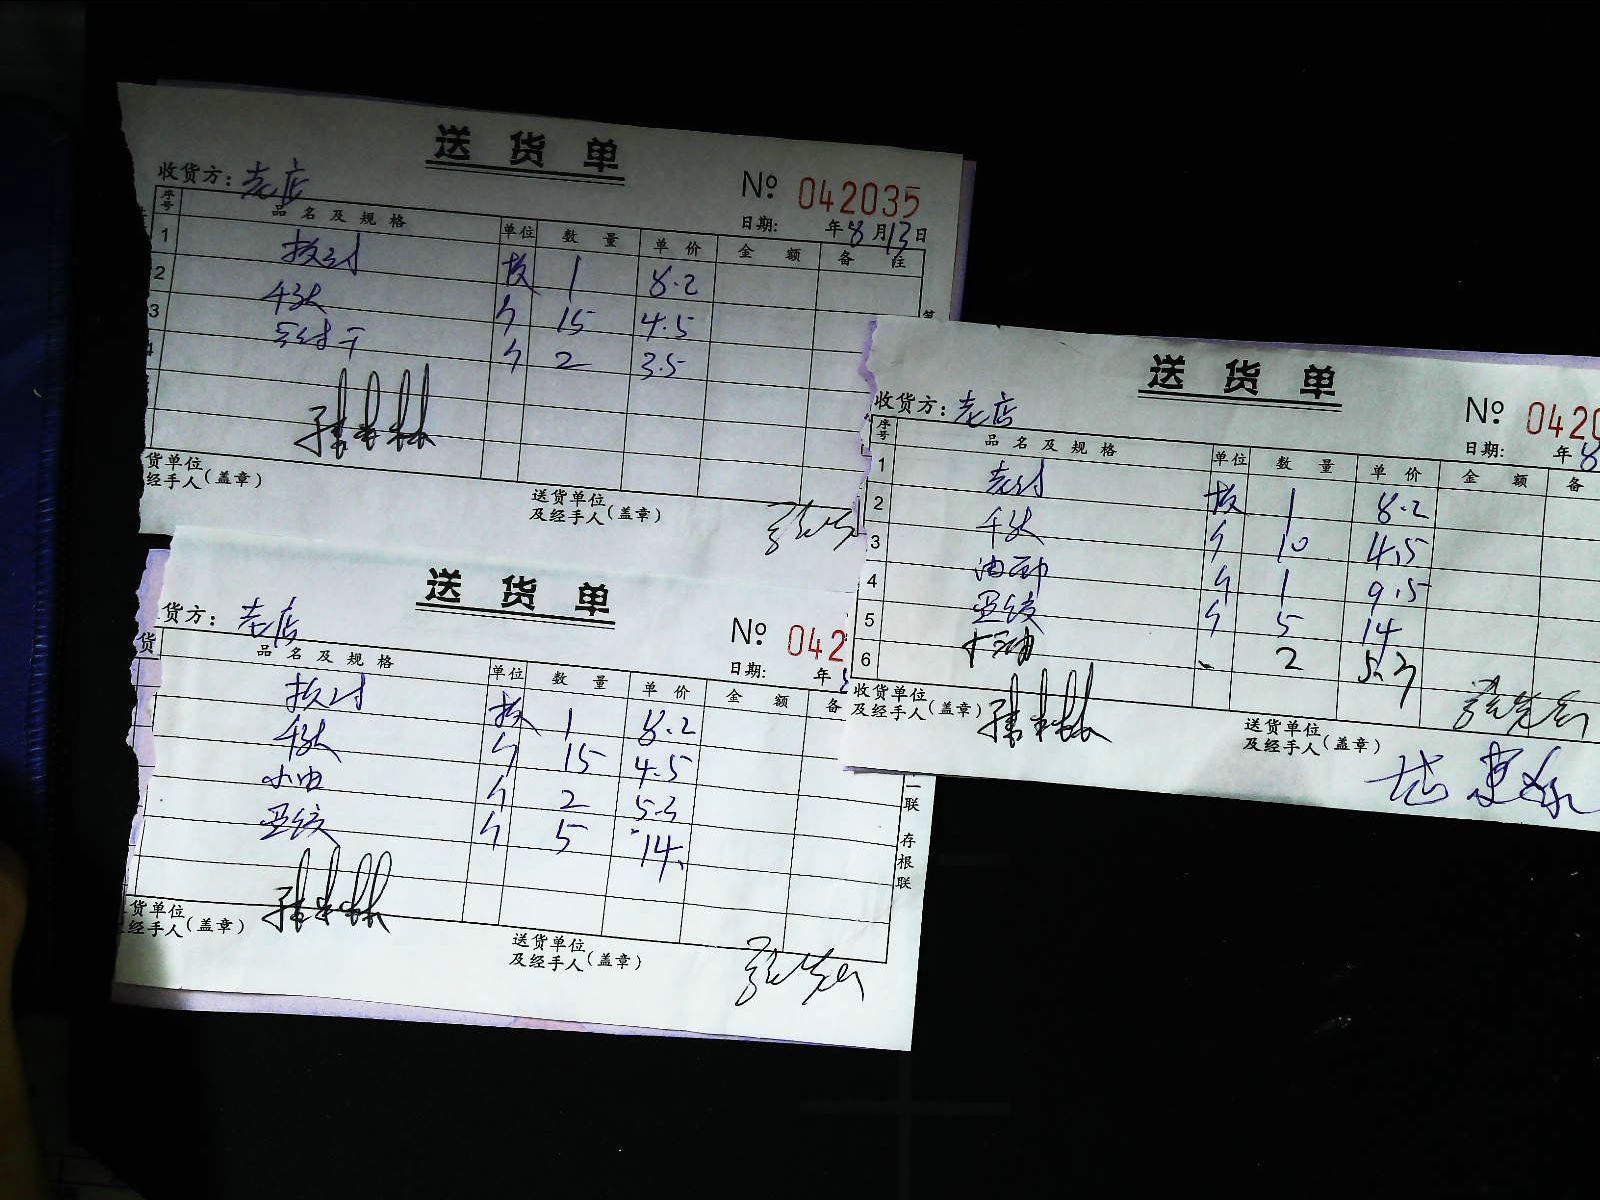 送货单
收货方: 老店
№ 042035
日期: 年8月13日
序号 品名及规格 单位 数量 单价 金额 备注
1 板 1 8.2
2 千张 个 15 4.5
3 个 2 3.5
4
货单位
经手人(盖章)
送货单位
及经手人(盖章)
送货单
收货方: 老店
№ 0420
日期: 年8
序号 品名及规格 单位 数量 单价 金额 备
1 板 1 8.2
2 千张 个 10 4.5
3 油 个 1 9.5
4 个 5 14
5 2 5.3
6
收货单位
及经手人(盖章)
送货单位
及经手人(盖章)
送货单
货方: 老店
№ 042
日期: 年
货 品名及规格 单位 数量 单价 金额 备
板 1 8.2
千张 个 15 4.5
小油 个 2 5.3
个 5 14
货单位
经手人(盖章)
送货单位
及经手人(盖章)
二联 存根联